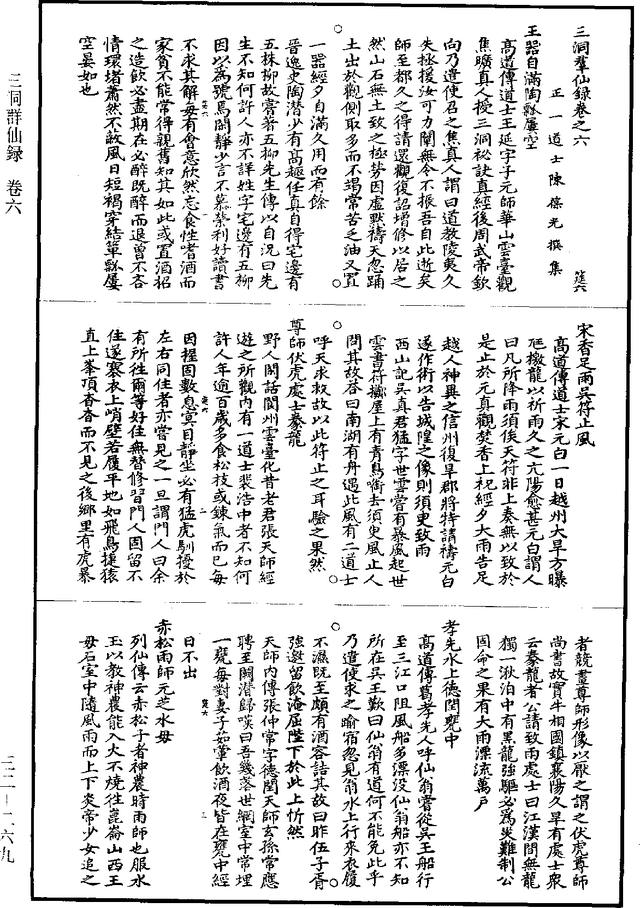 三洞羣仙錄卷之六 筵六
正一道士陳葆光撰集
王器自滿陶瓢屢空
高道傳道士王延字子元師華山雲臺觀
焦曠真人授三洞祕訣真經後周武帝欽
向乃遣使召之焦真人謂曰道教陵夷久
失拯援汝可力闡無令不振吾自此逝矣
師至都久之得請還觀復詔增修以居之
然山石無土致之極勞因虛默禱天忽踊
土出於觀側取多而不竭常苦乏油又置
一器經夕自滿久用而有餘
晉逸史陶潛少有高趣任真自得宅邊有
五株柳故嘗著五柳先生傳以自況曰先
生不知何許人亦不詳姓字宅邊有五柳
因以為號焉閑靜少言不慕榮利好讀書
不求其解每有會意欣然忘食性嗜酒而
家貧不能常得親舊知其如此或置酒招
之造飲必盡期在必醉既醉而退曾不吝
情環堵蕭然不蔽風日短褐穿結簞瓢屢
空晏如也
宋香足雨吳符止風
高道傳道士宋元白一日越州大旱方曝
尫檄龍以祈雨久之亢陽愈甚元白謂人
曰凡所降雨須俟天符非上奏無以致於
是止於元真觀焚香上祝經夕大雨告足
越人神異之信州復旱郡將特請禱元白
遂作術以告城隍之像則須臾致雨
西山記吳真君猛字世雲嘗有暴風起世
雲書符擲屋上有青烏㗸去須臾風止人
問其故荅曰南湖有舟遇此風有二道士
呼天求救故以此符止之耳驗之果然
尊師伏虎處士豢龍
野人閑話閬州雲臺化昔老君張天師經
遊之所觀內有一道士裴浩中者不知何
許人年逾百歲多食松枝或鍊氣而已每
因握固數息冥目靜坐必有猛虎馴擾於
左右同住者亦嘗見之一旦謂門人曰余
有所往爾等好住無替修習門人固留不
住遂褰衣上峭壁若履平地如飛鳥捷猿
直上峯頂杳杳而不見之後鄉里有虎暴
者競畫尊師形像以厭之謂之伏虎尊師
尚書故實牛相國鎮襄陽久旱有處士衆
云豢龍者公請致雨處士曰江漢間無龍
獨一湫泊中有黑龍強驅必為災難制公
固命之果有大雨漂流萬戶
孝先水上德閏甕中
高道傳葛孝先人呼仙翁嘗從吳王船行
至三江口阻風船多漂没仙翁船亦不知
所在吳王歎曰仙翁有道何不能免此乎
乃遣使求之踰宿忽見翁水上行來衣履
不濕既至頗有酒容詰其故曰昨伍子胥
強邀留飲淹屈陛下於此上忻然
天師內傳張仲常字德閏天師玄孫常應
聘至闕潛歸嘆曰吾幾落世網室中常埋
一甕每對妻子茹葷飲酒夜皆在甕中經
日不出
赤松雨師元芝水母
列仙傳云赤松子者神農時雨師也服水
玉以教神農能入火不燒往崑崙山西王
母石室中隨風雨而上下炎帝少女追之
三洞群仙錄 卷六
三二—二六九